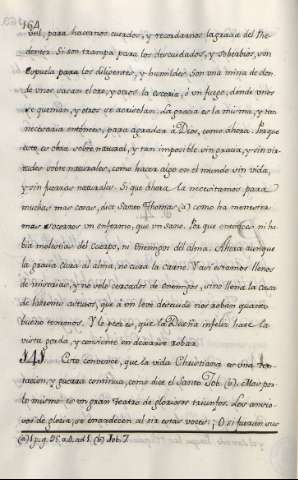 164
Sol, para hacernos curados, y recordarnos la gracia del Redentor. Si son trampa para los descuidados, y soberbios, son
espuela para los diligentes, y humildes. Son una mina de donde unos sacan el oro, y otros la escoria, ò un fuego, donde unos
se queman, y otros se acrisolan. La gracia es la misma, y tan
necesaria entónces, para agradar a Dios, como ahora. Porque
esto, es obra sobrenatural, y tan imposible sin gracia, y sin virtudes sobre naturales, como hacer algo en el mundo sin vida,
y sin fuerzas naturales. Si que ahora la necesitamos para
muchas mas cosas, dice Santo Thomas, (a) como ha menester
mas socorros un enfermo, que un Sano. Por que entonces ni habia molestias del cuerpo, ni enemigos del alma. Ahora aunque
la gracia cura al alma, no cura la carne. Y así estamos llenos
de miserias, y no solo cercados de enemigos, sino llena la casa
de ladrones caseros, que á un leve descuido nos roban quanto
bueno tenemos. Y lo peor es, que la Dueña infeliz hace la
vista gorda, y consiente en dexarse robar.
141 Esto convence, que la vida Christiana es una tentacion, y guerra continua, como dice el Santo Job. (b). Mas por
lo mismo es un gran Teatro de gloriosos triunfos. Los
de gloria, se
(a) 1. p. q. 95. a. 4. ad 1. (b) Job. 7.